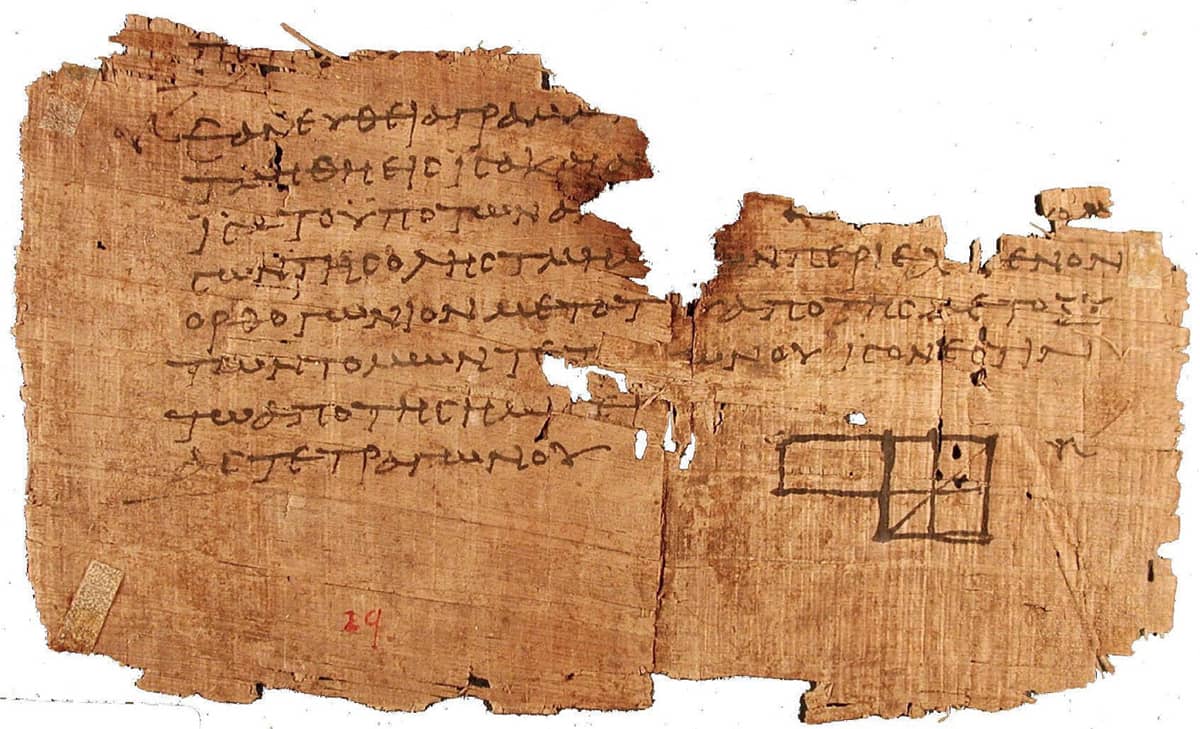 ΕΑΝ ΕΥΘΕΙΑ ΓΡΑΜΜ
ΤΜΗΘΗ ΕΙϹ ΙϹΑ ΚΑΙ ΑΝ
ΙϹΑ ΤΟ ΥΠΟ ΤΩΝ ΑΝ
ϹΩΝ ΤΗϹ ΟΛΗϹ ΤΜΗΜ ΩΝ ΠΕΡΙΕΧΟΜΕΝΟΝ
ΟΡΘΟΓΩΝΙΟΝ ΜΕΤΑ ΤΟΥ ΑΠΟ ΤΗϹ ΜΕΤΟΞΥ
ΤΩΝ ΤΟΜΩΝ ΤΕΤ ΓΩΝΟΥ ΙϹΟΝ ΕϹΤΙΝ
ΤΩ ΑΠΟ ΤΗϹ ΗΜΙϹΕΙ
ΑϹ ΤΕΤΡΑΓΩΝΟΥ
29